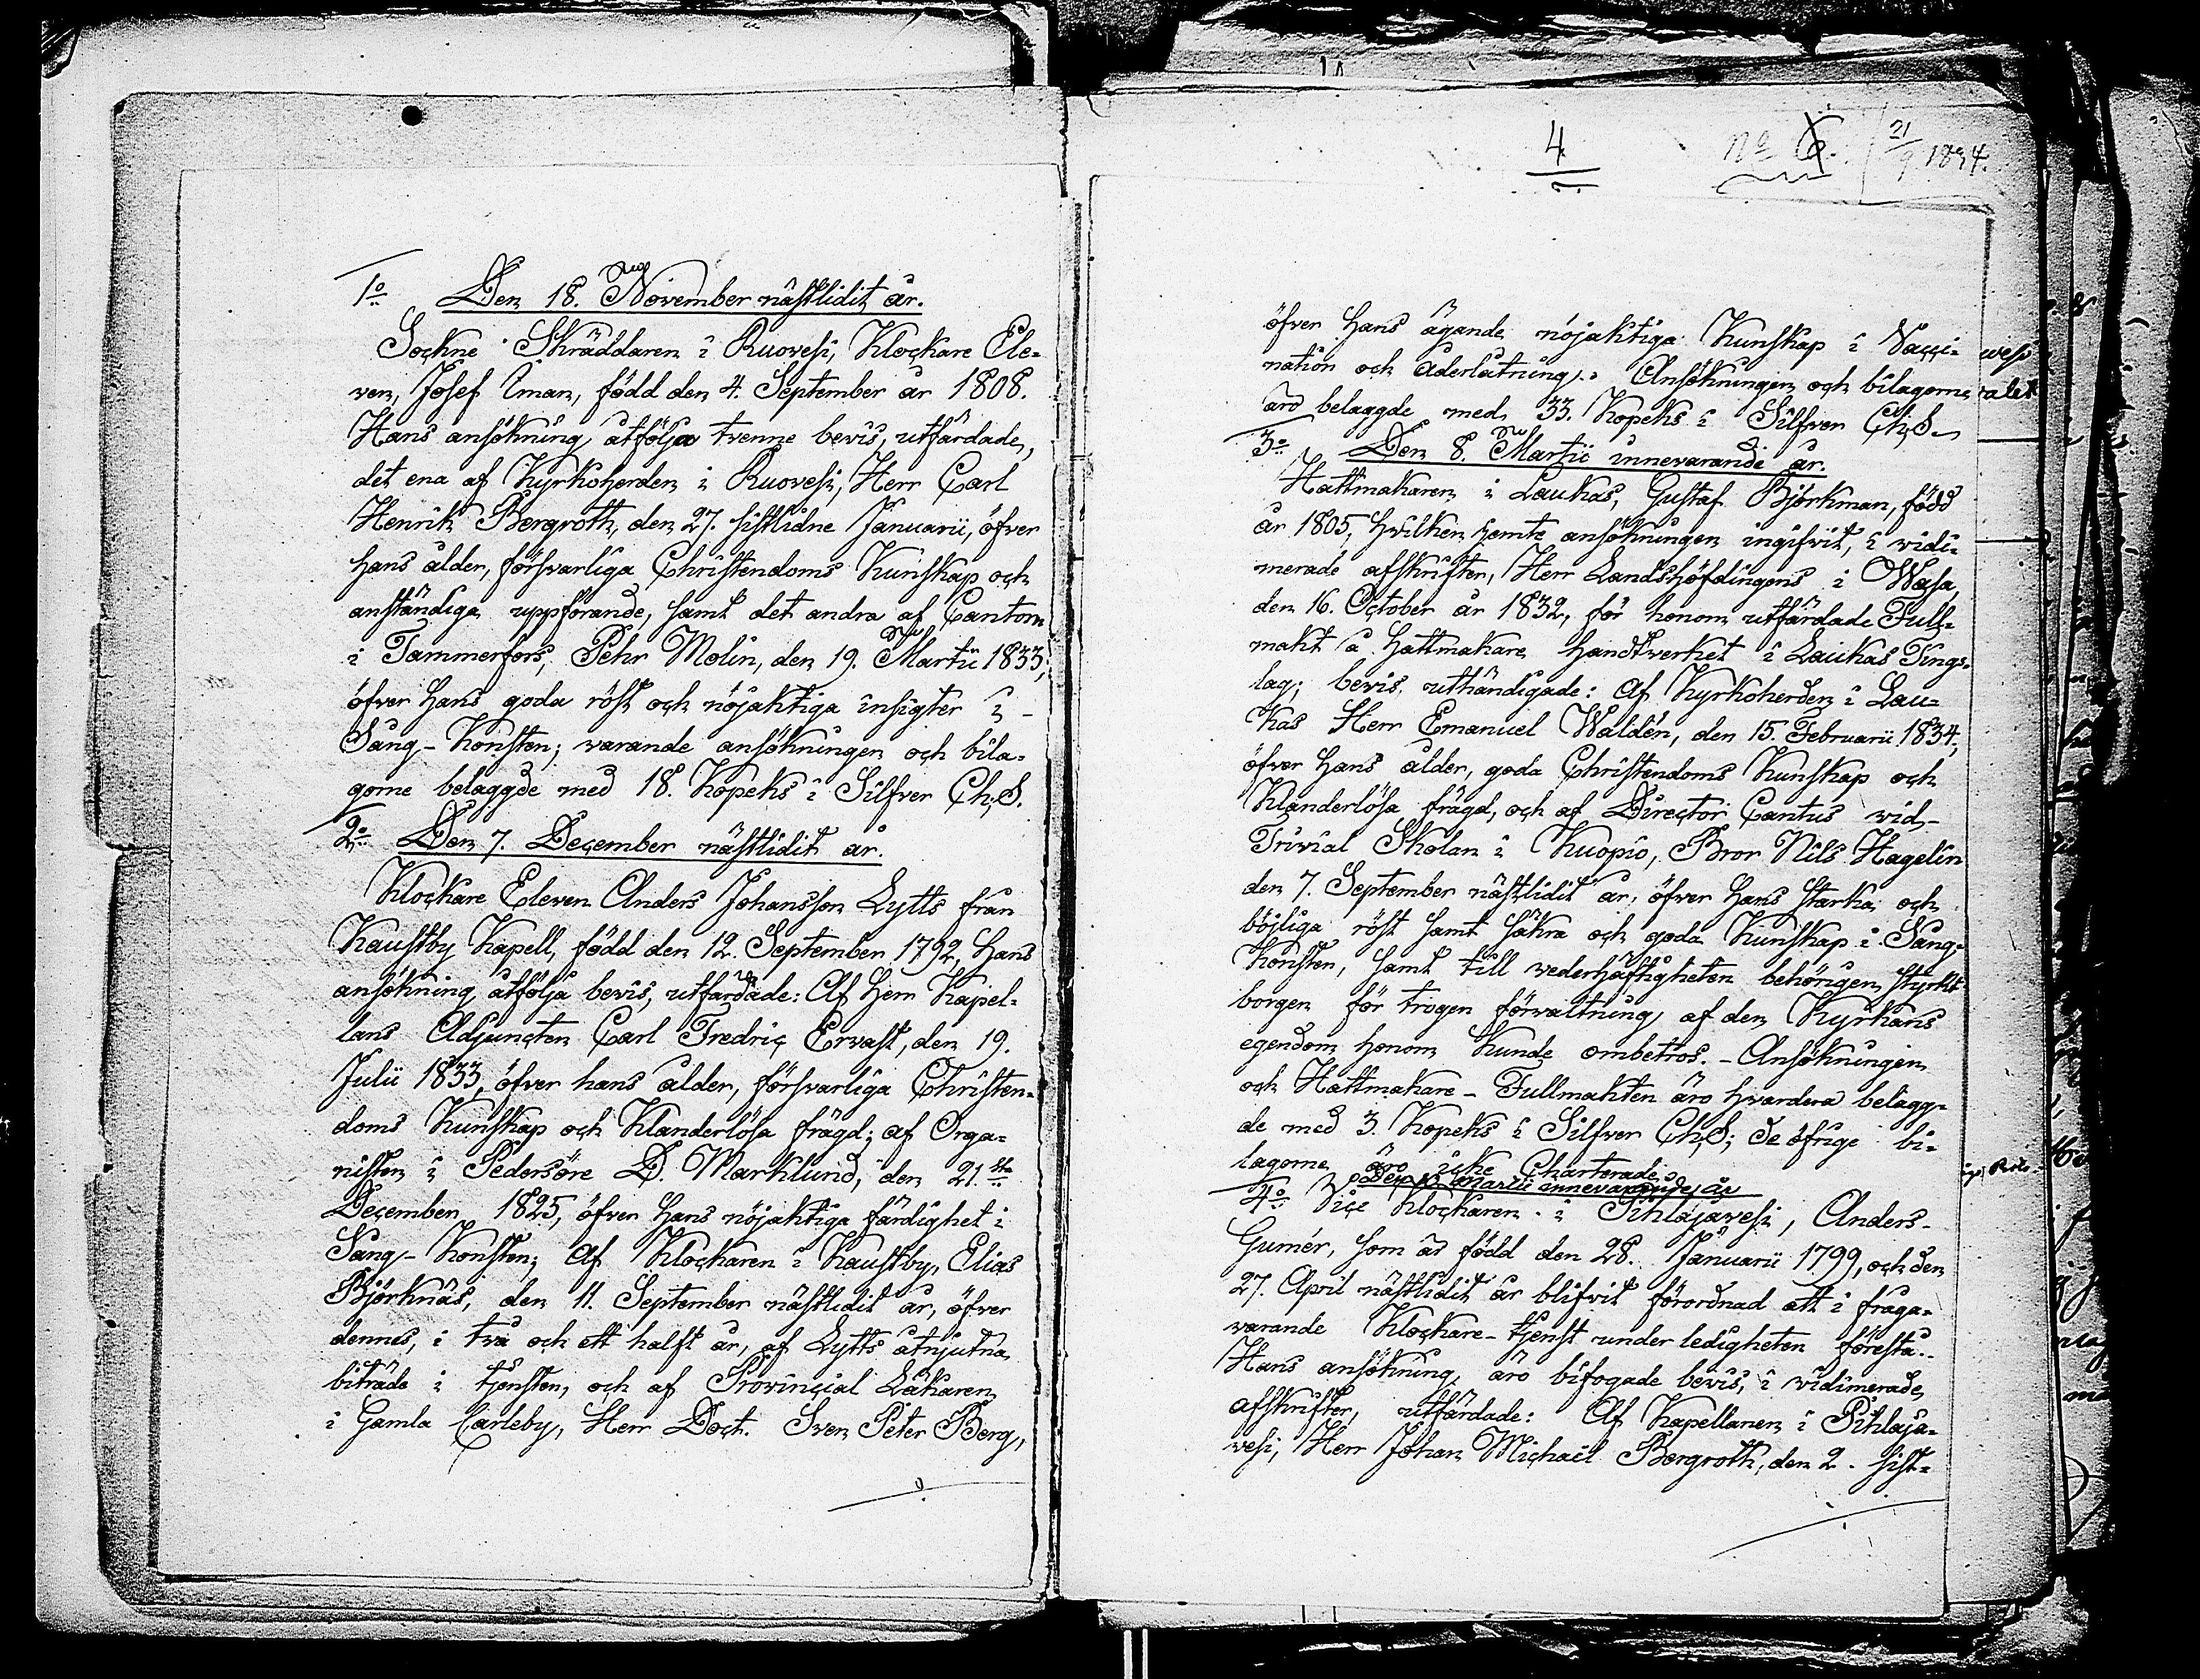 1o Den 18. November nästlidit år.
Sockne Skräddaren i Ruovesi, Klockare Ele-
ven, Josef Iman, född den 4. September år 1808.
Hans ansökning, åtfölja tvenne bevis, utfärdade,
det ena af Kyrkoherden i Ruovesi, Herr Carl
Henrik Bergroth, den 27. sistlidne Januarii, öfver
hans ålder, försvarliga Christendoms Kunskap och
anständiga uppförande, samt det andra af Cantorn
i Tammerfors, Pehr Molin, den 19. Martii 1833,
öfver hans goda röst och nöjaktiga insigter i
Sång-Konsten; varande ansökningen och bila-
gorne belaggde med 18. Kopeks i Silfver Ch. S.
2o Den 7. December nästlidit år.
Klockare Eleven Anders Johansson Lytts från
Kaustby Kapell, född den 12. September 1792, hans
ansökning åtfölja bevis, utfärdade: Af Herr Kapel-
lans Adjuncten Carl Fredric Ervast, den 19.
Julii 1833, öfver hans ålder, försvarliga Christen-
doms Kunskap och Klanderlösa frägd; af Orga-
nisten i Pedersöre D. Marklund, den 21.sta
December 1825, öfver hans nöjaktiga färdighet i
Sång-Konsten; Af Klockaren i Kaustby, Elias
Björknäs, den 11. September nästlidit år, öfver
dennes, i två och ett halft år, af Lytts åtnjutna
biträde i tjensten, och af Provincial Läkaren
i Gamla Carleby, Herr Doct. Sven Peter Berg,
4 No 6. 21/9 1834.
öfver hans ägande nöjaktiga Kunskap i Vacci-
nation och åderlåtning. Ansökningen och bilagorne
äro belaggde med 33. Kopeks i Silfver Ch. S.
3o Den 8. Martii innevarande år.
Hattmakaren i Laukas, Gustaf Björkman, född
år 1805, hvilken jemte ansökningen ingifvit, i widi-
merade afskrifter, Herr Landshöfdingens i Wasa,
den 16. October år 1832, för honom utfärdade Full-
makt å Hattmakare handtverket i Laukas Tings-
lag; bevis, uthändigade: Af Kyrkoherden i Lau-
kas Herr Emanuel Waldén, den 15. Februarii 1834,
öfver hans ålder, goda Christendoms Kunskap och
Klanderlösa frägd, och af Director Cantus vid
Trivial Skolan i Kuopio, Bror Nils Hagelin
den 7. September nästlidit år, öfver hans starka och
böjliga röst samt säkra och goda Kunskap i Sång-
Konsten, samt till vederhäftigheten behörigen styrkt
borgen för trogen förvaltning af den Kyrkans
egendom honom kunde ombetros. - Ansökningen
och Hattmakare-Fullmakten äro hvardera belagg-
de med 3. Kopeks i Silfver Ch. S; de öfrige bi-
lagorne äro icke Charterade.
4o Martii innevarande år
Vice Klockaren i Pihlajavesi, Anders
Gumér, som är född den 28. Januarii 1799, och den
27. April nästlidit år blifvit förordnad att i fråga-
varande Klockare-tjenst under ledigheten förestå.
Hans ansökning, äro bifogade bevis, i widimerade
afskrifter, utfärdade: Af Kapellanen i Pihlaja-
vesi, Herr Johan Michaël Bergroth, den 2. sist-